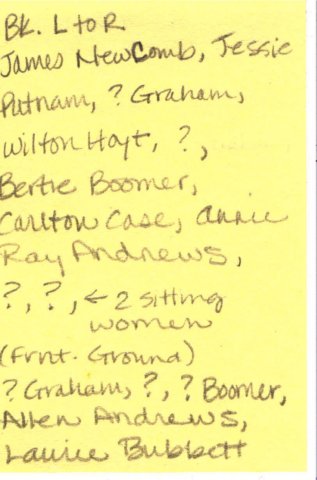 Bk. L to R
James Newcomb, Jessie
Putnam, ? Graham,
Wilton Hoyt, ?,
Bertie Boomer,
Carlton Case, Annie
Ray Andrews,
?, ?, ← 2 sitting
women
(Frnt. Ground)
? Graham, ?, ? Boomer,
Allen Andrews,
Laurie Bubbett